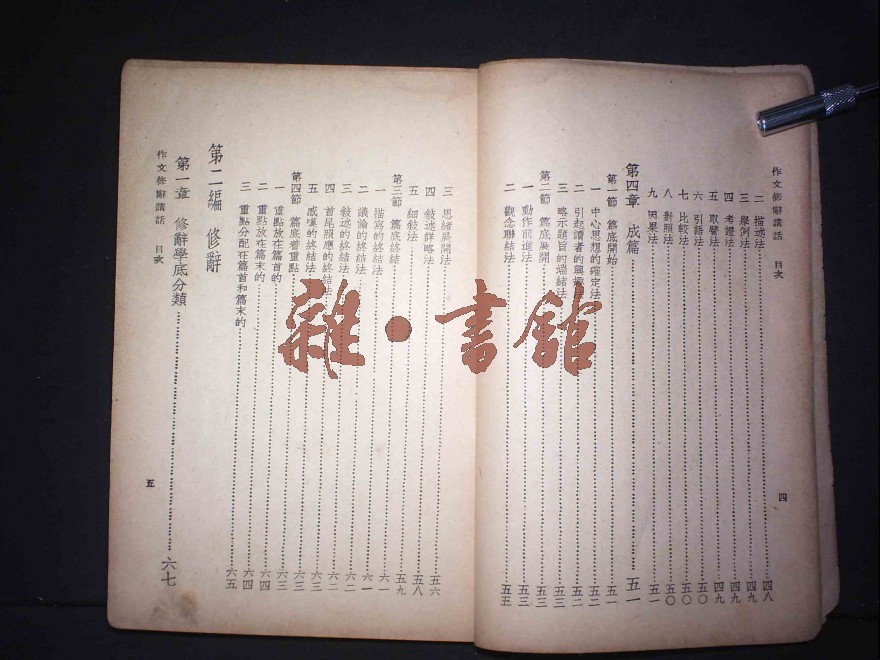 作文修辭講話 目次 四
二 描述法…四八
三 舉例法…四九
四 考證法…四九
五 取譬法…四九
六 引語法…五〇
七 比較法…五〇
八 對照法…五〇
九 因果法…五一
第四章 成篇…五一
第一節 篇底開始…五一
一 中心思想的確定法…五二
二 引起讀者的興趣…五二
三 略示題旨的端緒法…五三
第二節 篇底展開…五三
一 動作前進法…五三
二 觀念聯結法…五五
三 思緒展開法…五六
四 敍述詳略法…五八
五 細敍法…五九
第三節 篇底終結…六一
一 描寫的終結法…六一
二 議論的終結法…六二
三 敍述的終結法…六二
四 首尾照應的終結法…六三
五 感嘆的終結法…六三
第四節 篇底着重點…六三
一 重點放在篇首的…六三
二 重點放在篇末的…六四
三 重點分配在篇首和篇末的…六五
第二編 修辭
第一章 修辭學底分類…六七
作文修辭講話 目次 五
雜·書舘